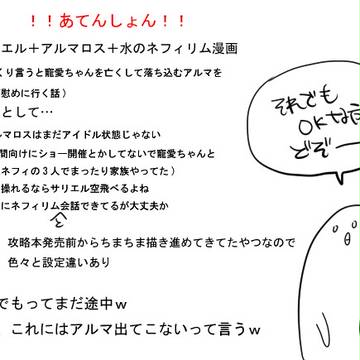 ！！あてんしょん！！
エル＋アルマロス＋水のネフィリム漫画
くり言うと寵愛ちゃんを亡くして落ち込むアルマを
慰めに行く話）
として…
ルマロスはまだアイドル状態じゃない
間向けにショー開催とかしてないで寵愛ちゃんと
ネフィの３人でまったり家族やってた）
操れるならサリエル空飛べるよね
にネフィリム会話できてるが大丈夫か
攻略本発売前からちまちま描き進めてきてたやつなので
色々と設定違いあり
でもってまだ途中ｗ
これにはアルマ出てこないって言うｗ
それでも
OKな
どぞー